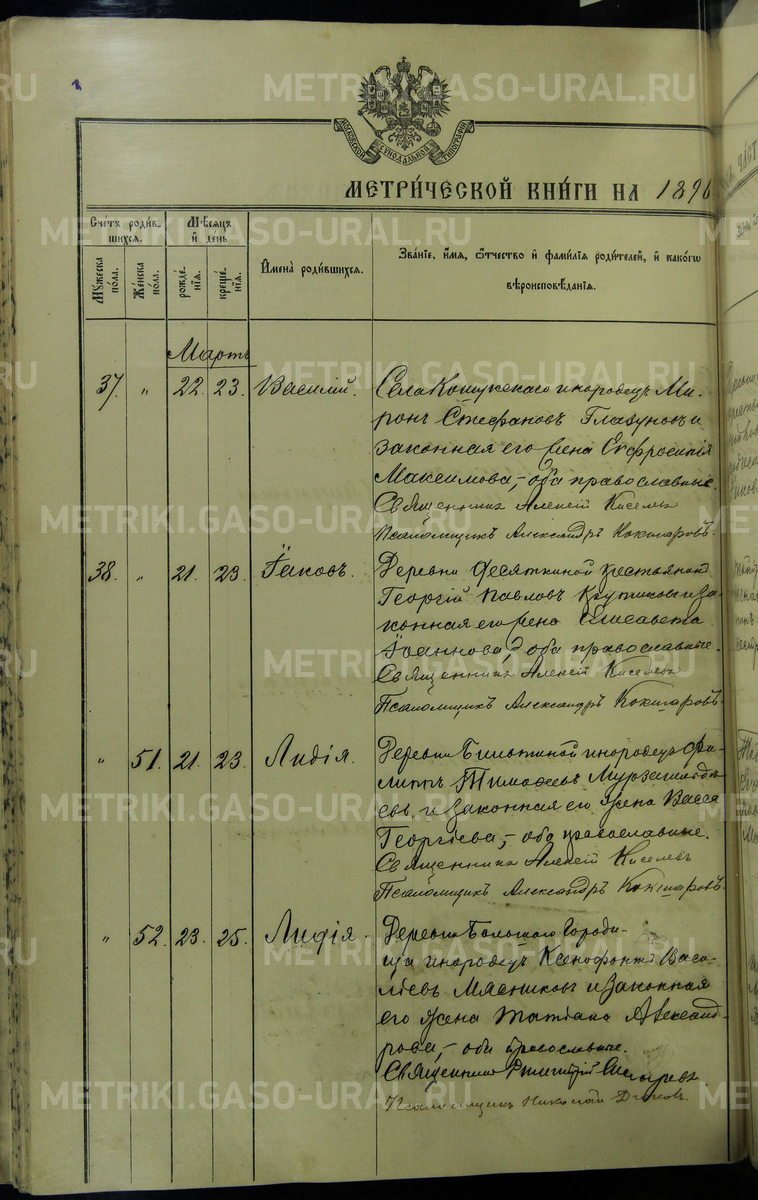 METRIKI.GASO-URAL.RU
МОСКОВСКОЙ СѴНОДАЛЬНОЙ ТИПОГРАФІИ
МЕТРИ́ЧЕСКОЙ КНИ́ГИ НА 1896
Сче́тъ роди́в-
шихся.
Мѣ́сяцъ
и҆ де́нь
Мꙋ́жеска по́ла.
Же́нска по́ла.
рожде́-
нїѧ.
креще́-
нїѧ.
И҆мена̀ роди́вшихся.
Зва́нїе, и҆́мя, ѻ҆́тчество и҆ фами́лїя роди́телей, и҆ како́гѡ
вѣроисповѣ́данїя.
Мартъ
37. „ 22. 23. Василій.
Села Кошукскаго инородецъ Ми-
ронъ Стефановъ Глазуновъ и
законная его жена Евфросинія
Максимова, – оба православные.
Священникъ Алексей Киселевъ
Псаломщикъ Александръ Кокшаровъ.
38. „ 21. 23. Іаковъ.
Деревни Десяткиной крестьянинъ
Георгій Павловъ и за-
конная его жена Елисавета
Іоаннова, оба православные.
Священникъ Алексей Киселевъ
Псаломщикъ Александръ Кокшаровъ.
„ 51. 21. 23. Лидія.
Деревни инородецъ Фи-
липпъ Тимофеевъ
евъ и законная его жена Васса
Георгіева, – оба православные.
Священникъ Алексей Киселевъ
Псаломщикъ Александръ Кокшаровъ.
„ 52. 23. 25. Лидія.
Деревни Большаго Городи-
ща инородецъ Ксенофонтъ Васи-
льевъ Мясниковъ и законная
его жена Татіана Александ-
рова, – оба православные.
Священникъ
Псаломщикъ Николай